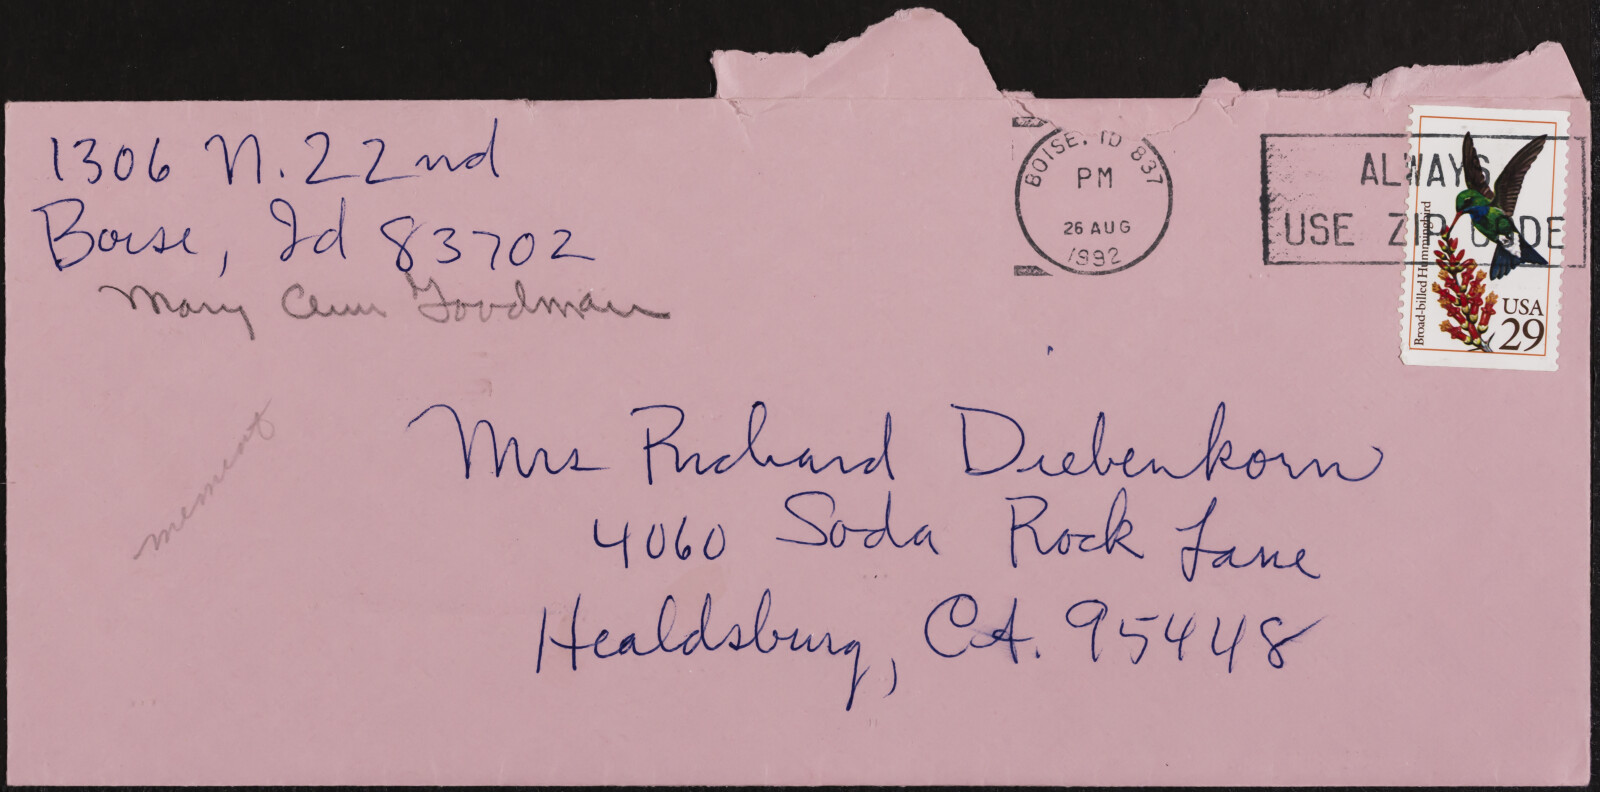 1306 N. 22nd
Boise, Id 83702
Mary Ann Goodman
BOISE, ID 837
PM
26 AUG
1992
ALWAYS
USE ZIP CODE
Broad-billed Hummingbird
USA
29
Mrs Richard Diebenkorn
4060 Soda Rock Lane
Healdsburg, CA. 95448